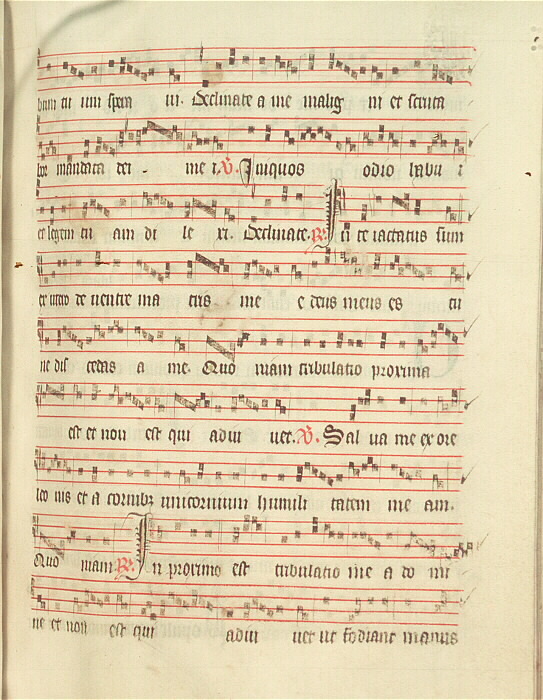 bum tu um spera ui. Declinate a me malig ni et scruta
bor mandata dei me i. V. Iniquos odio habu i
et legem tu am di le xi. Declinate. R. In te iactatus sum
ex utero de ventre ma tris me e deus meus es tu
ne dis cedas a me. Quo niam tribulatio proxima
est et non est qui adiu uet. V. Sal ua me ex ore
leo nis et a cornibus unicornium humili tatem me am.
Quo niam. R. In proximo est tribulatio me a do mi
ne et non est qui adiu uet ut fodiant manus